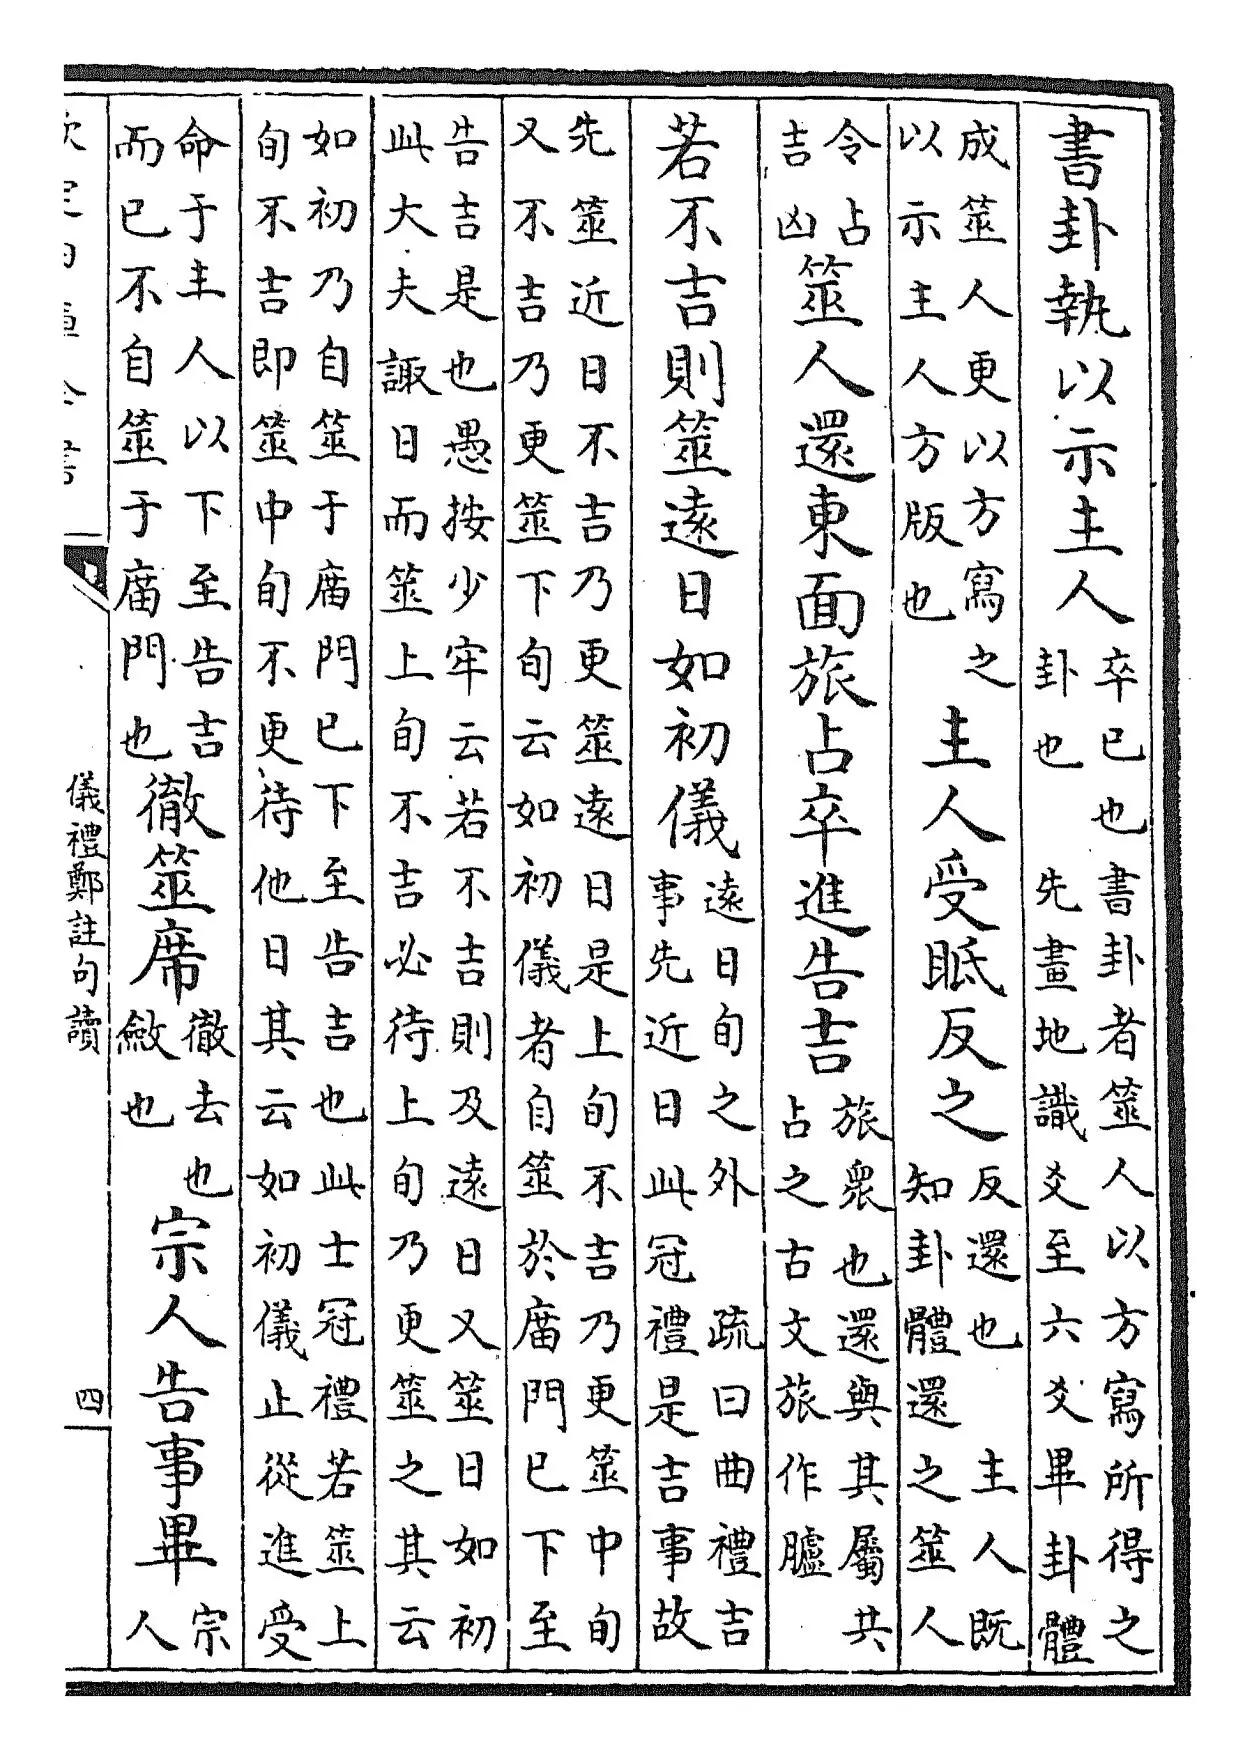 書卦執以示主人卒已也書卦者筮人以方寫所得之卦也　先畫地識爻至六爻畢卦體
成筮人更以方寫之以示主人方版也主人受眡反之反還也　主人既知卦體還之筮人
令占吉凶筮人還東面旅占卒進告吉旅衆也還與其屬共占之古文旅作臚
若不吉則筮遠日如初儀遠日旬之外　疏曰曲禮吉事先近日此冠禮是吉事故
先筮近日不吉乃更筮遠日是上旬不吉乃更筮中旬又不吉乃更筮下旬云如初儀者自筮於庿門已下至
告吉是也愚按少牢云若不吉則及遠日又筮日如初此大夫諏日而筮上旬不吉必待上旬乃更筮之其云
如初乃自筮于庿門已下至告吉也此士冠禮若筮上旬不吉即筮中旬不更待他日其云如初儀止從進受
命于主人以下至告吉而已不自筮于庿門也徹筮席徹去也斂也宗人告事畢宗人
欽定四庫全書
儀禮鄭註句讀
四